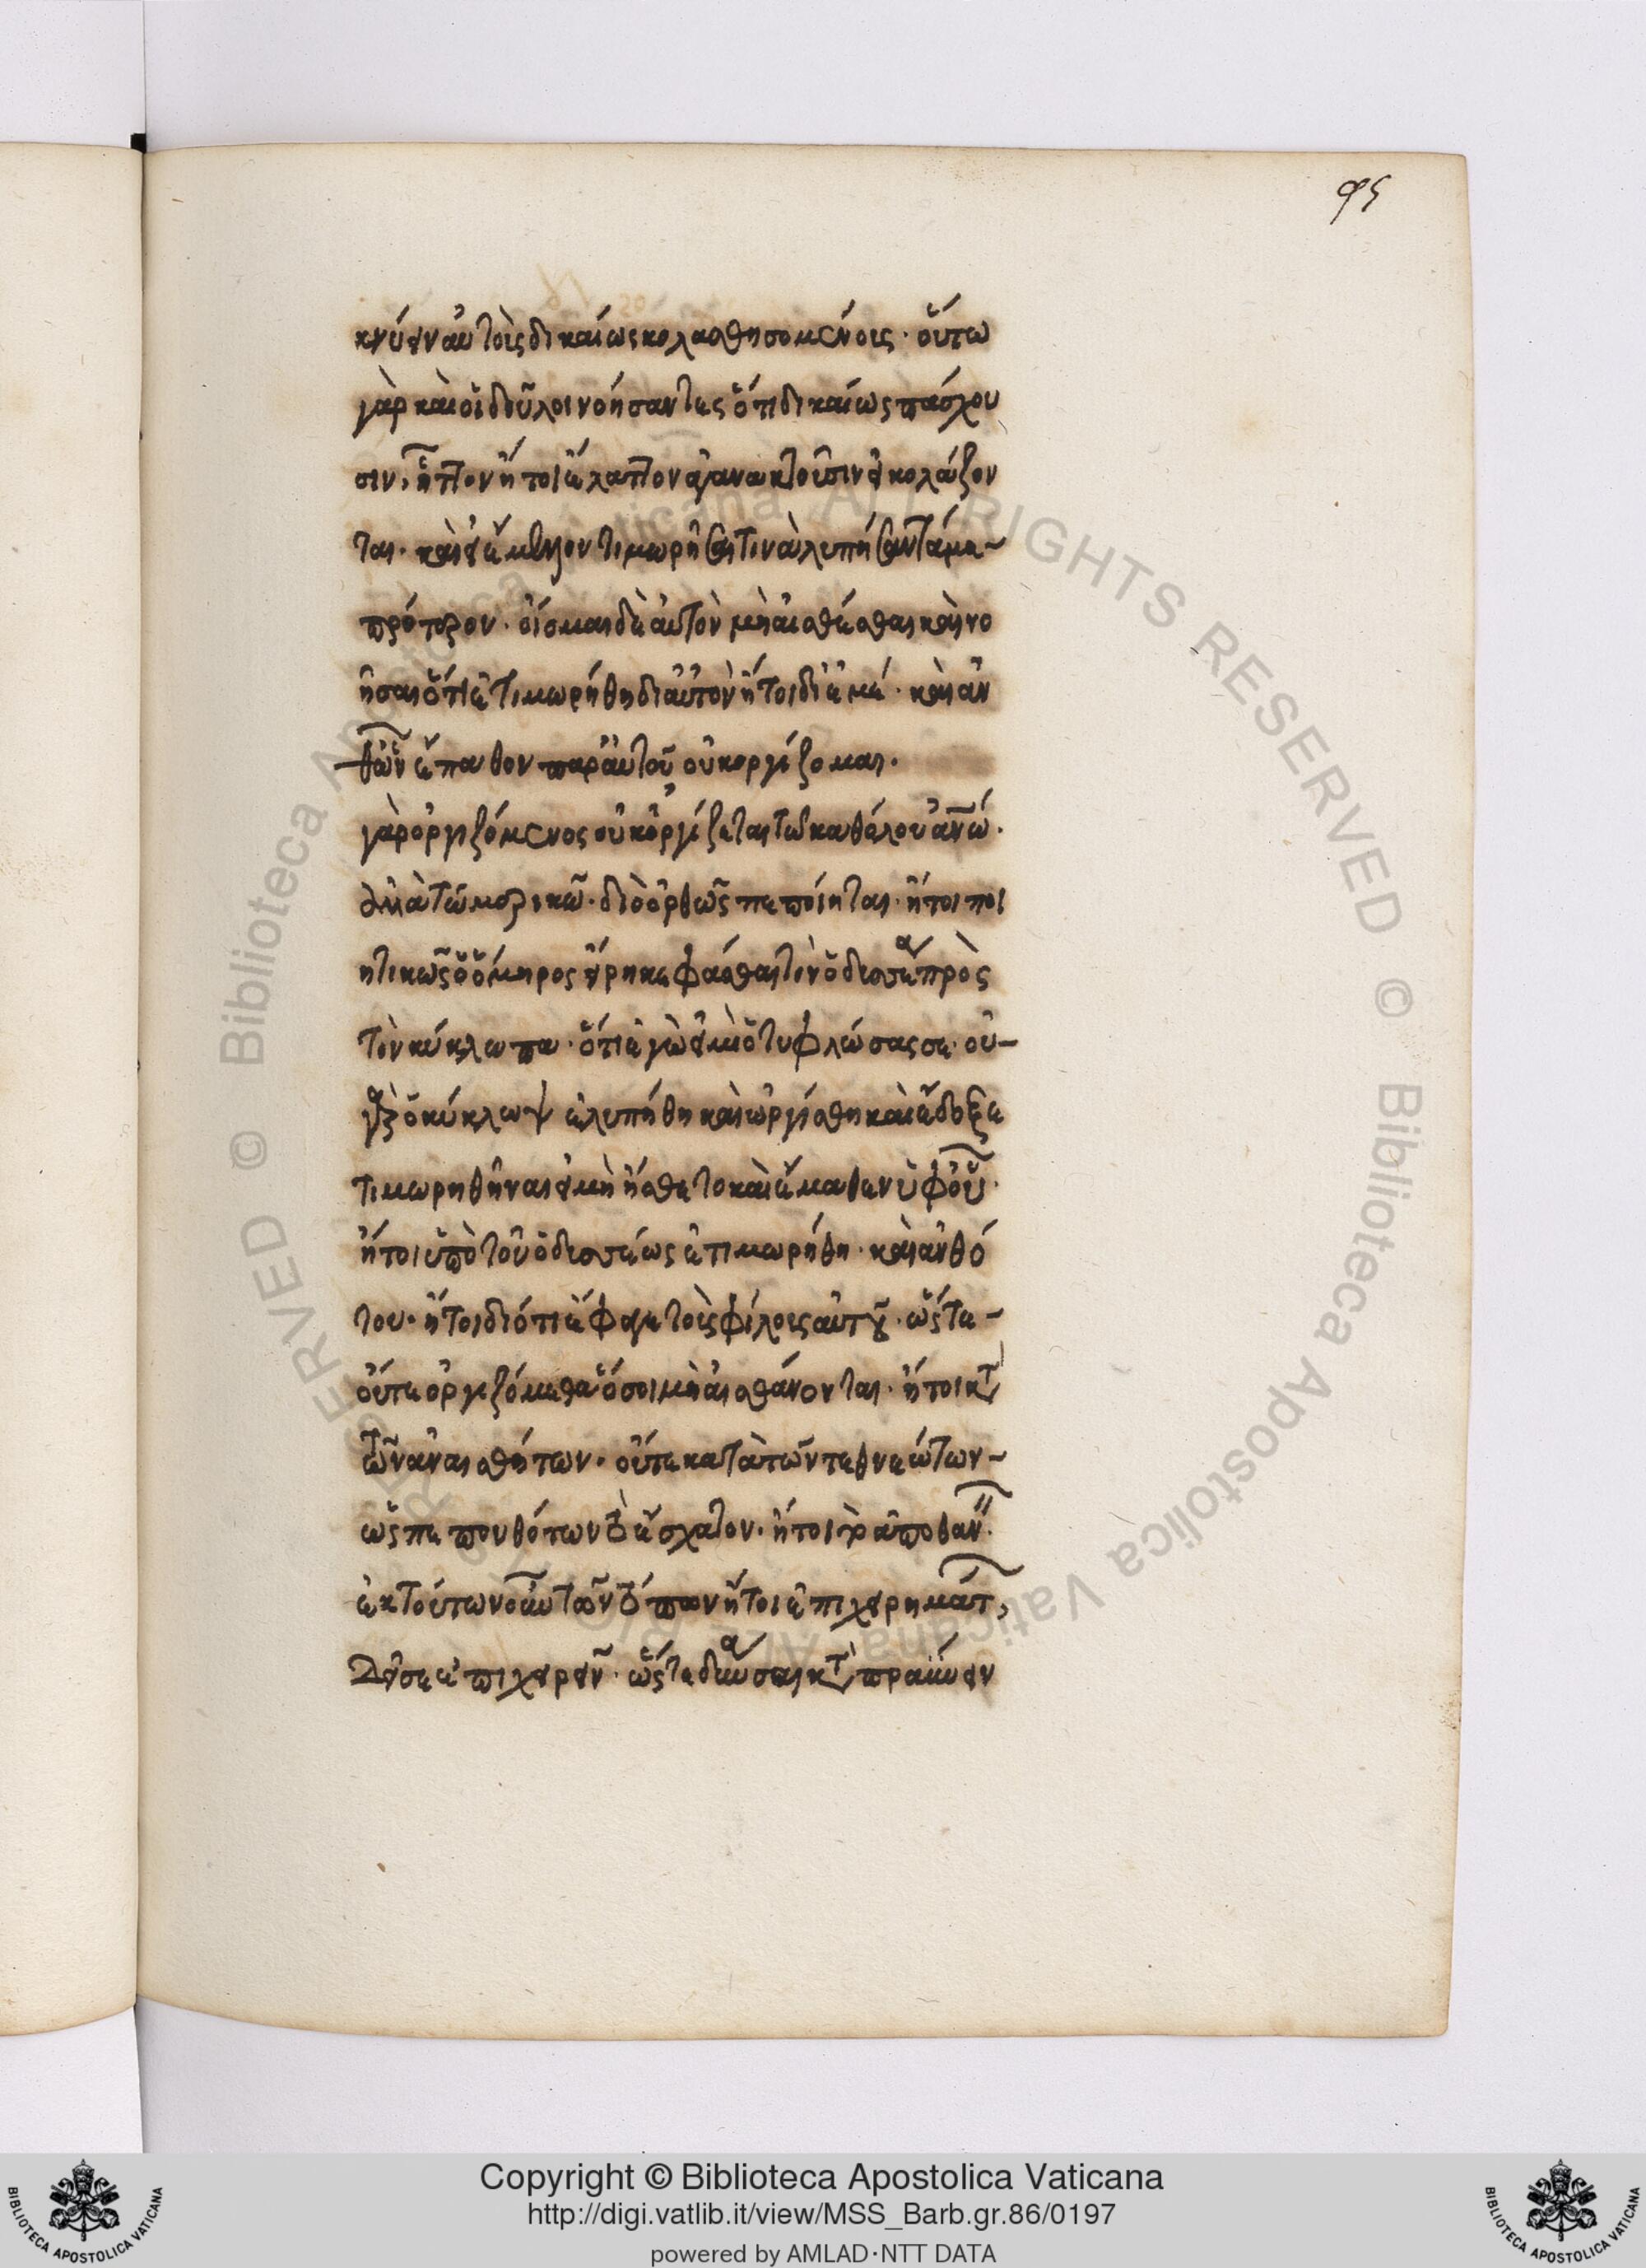 95
κνύειν αὐτοῖς δικαίως κολασθησομένοις· οὕτω
γὰρ καὶ οἱ δοῦλοι νοήσαντες ὅτι δικαίως πάσχου
σιν, ἧττον ἤτοι ἔλαττον ἀγανακτοῦσιν εἰ κολάζον
ται· καὶ εἰ ἔμελλον τιμωρῆσαί τινα λυπήσαντά με
πρότερον· οἴομαι δὲ αὐτὸν μὴ αἰσθέσθαι καὶ νο
ῆσαι ὅτι ἐτιμωρήθη δι αὐτὸν ἤτοι δι ἐμέ· καὶ ἀν
θ ὧν ἔπαθον παρ αὐτοῦ οὐκ ὀργίζομαι·
γὰρ ὀργιζόμενος οὐκ ὀργίζεται τῶ καθόλου ἀνω·
ἀλλὰ τῶ μερικῶ· διὸ ὀρθῶς πεποίηται· ἤτοι ποι
ητικῶς ὁ ὅμηρος εἴρηκε φάσθαι τὸν ὀδυσσέα πρὸς
τὸν κύκλωπα· ὅτι ἐγὼ εἰμὶ ὁ τυφλώσας σε· οὐ
γὰρ ὁ κύκλωψ ἐλυπήθη καὶ ὠργίσθη καὶ ἔδοξε
τιμωρηθῆναι εἰ μὴ ἤσθετο καὶ ἔμαθεν ὑφ οὗ·
ἤτοι ὑπὸ τοῦ ὀδυσσέως ἐτιμωρήθη· καὶ ἀνθ ό
του· ἤτοι διότι ἔφαγε τοὺς φίλους αὐτοῦ· ὥστε
οὔτε ὀργιζόμεθα ὅσοι μὴ αἰσθάνονται· ἤτοι κατ
τῶν ἀναισθήτων· οὔτε κατὰ τῶν τεθνεώτων
ὡς πεπονθότων τὸ ἔσχατον· ἤτοι τὸ ἀποθαν·
ἐκ τούτων οὖν τῶν τόπων ἤτοι ἐπιχειρημάτ,
δεῖ σε ἐπιχειρεῖν· ὥστε δεῦσαι κατ πραΰνειν
Copyright © Biblioteca Apostolica Vaticana
http://digi.vatlib.it/view/MSS_Barb.gr.86/0197
powered by AMLAD·NTT DATA
BIBLIOTECA APOSTOLICA VATICANA
BIBLIOTECA APOSTOLICA VATICANA
Biblioteca Apostolica Vaticana ALL RIGHTS RESERVED ©